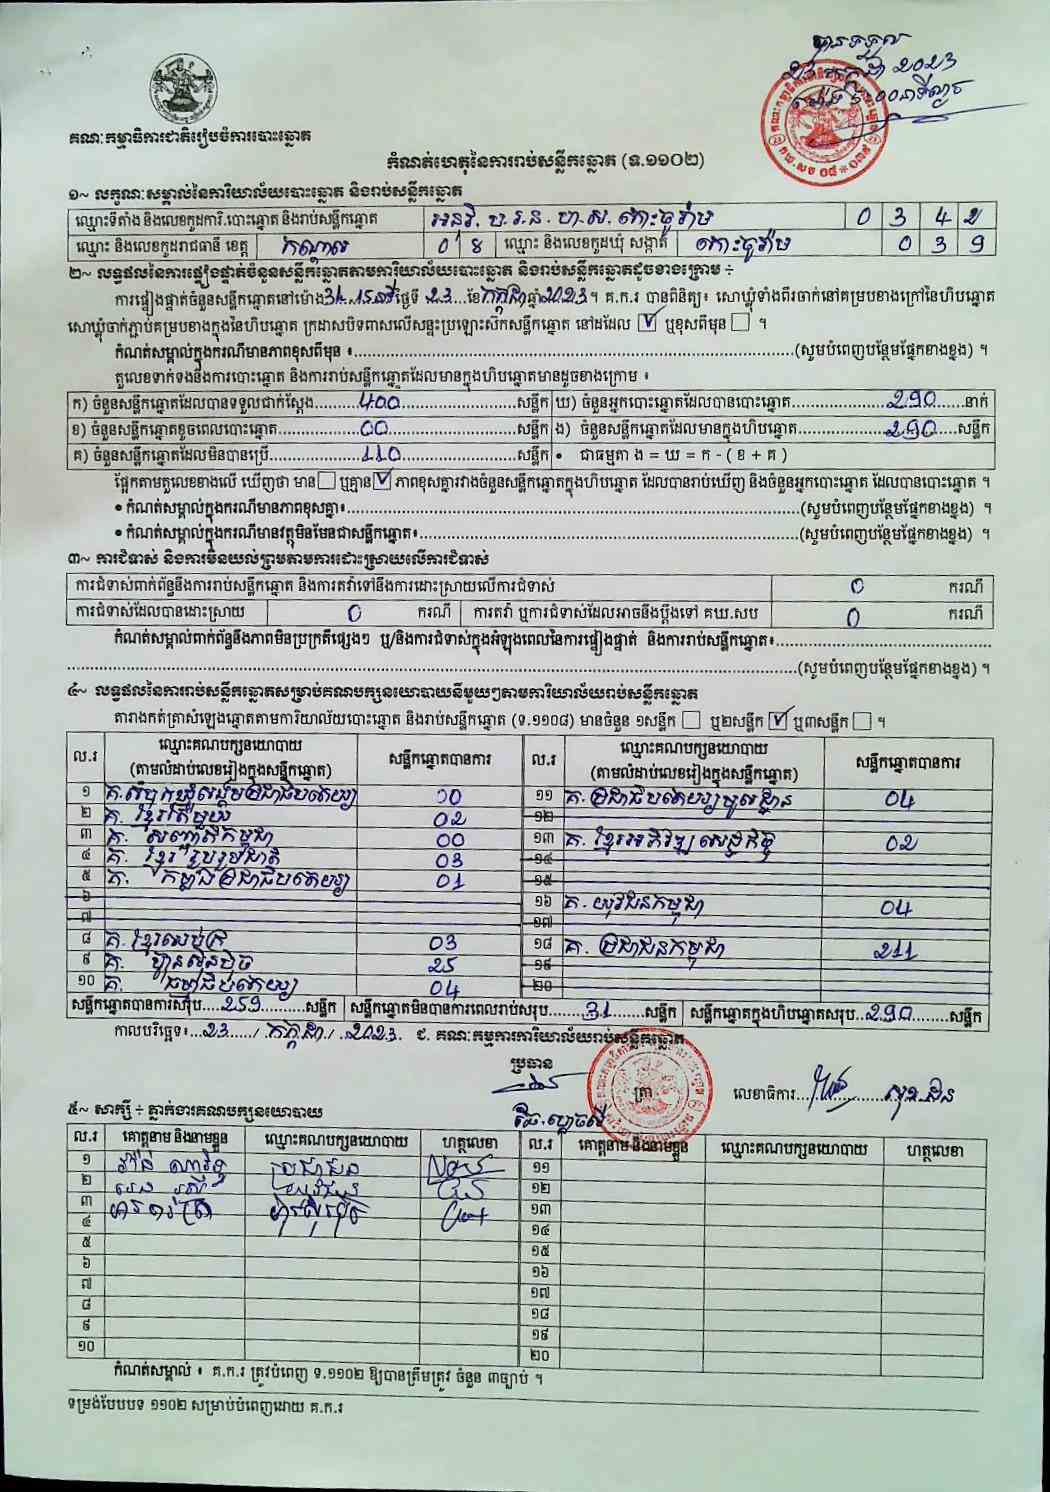 បានទទួល
2023
គណៈកម្មាធិការជាតិរៀបចំការបោះឆ្នោត
កំណត់ហេតុនៃការរាប់សន្លឹកឆ្នោត (ទ.១១០២)
១~ លក្ខណៈសម្គាល់នៃការិយាល័យបោះឆ្នោត និងរាប់សន្លឹកឆ្នោត
ឈ្មោះទីតាំង និងលេខកូដការិ.បោះឆ្នោត និងរាប់សន្លឹកឆ្នោត 0 3 4 2
ឈ្មោះ និងលេខកូដរាជធានី ខេត្ត កណ្ដាល 0 8 ឈ្មោះ និងលេខកូដឃុំ សង្កាត់ 0 3 9
២~ លទ្ធផលនៃការផ្ទៀងផ្ទាត់ចំនួនសន្លឹកឆ្នោតតាមការិយាល័យបោះឆ្នោត និងរាប់សន្លឹកឆ្នោតដូចខាងក្រោម ÷
ការផ្ទៀងផ្ទាត់ចំនួនសន្លឹកឆ្នោតនៅម៉ោង ថ្ងៃទី 23 ខែ កក្កដា ឆ្នាំ 2023 ។ គ.ក.រ បានពិនិត្យ៖ សោឃ្លុំទាំងពីរចាក់នៅគម្របខាងក្រៅនៃហិបឆ្នោត
សោឃ្លុំចាក់ភ្ជាប់គម្របខាងក្នុងនៃហិបឆ្នោត ក្រដាសបិទពាសលើសន្ទះប្រឡោះស៊កសន្លឹកឆ្នោត នៅដដែល ☑ ឬខុសពីមុន ☐ ។
កំណត់សម្គាល់ក្នុងករណីមានភាពខុសពីមុន ៖ (សូមបំពេញបន្ថែមផ្នែកខាងខ្នង) ។
តួលេខទាក់ទងនឹងការបោះឆ្នោត និងការរាប់សន្លឹកឆ្នោតដែលមានក្នុងហិបឆ្នោតមានដូចខាងក្រោម ៖
ក) ចំនួនសន្លឹកឆ្នោតដែលបានទទួលជាក់ស្ដែង 400 សន្លឹក ឃ) ចំនួនអ្នកបោះឆ្នោតដែលបានបោះឆ្នោត 290 នាក់
ខ) ចំនួនសន្លឹកឆ្នោតខូចពេលបោះឆ្នោត 00 សន្លឹក ង) ចំនួនសន្លឹកឆ្នោតដែលមានក្នុងហិបឆ្នោត 290 សន្លឹក
គ) ចំនួនសន្លឹកឆ្នោតដែលមិនបានប្រើ 110 សន្លឹក • ជាធម្មតា ង = ឃ = ក - ( ខ + គ )
ផ្អែកតាមតួលេខខាងលើ ឃើញថា មាន ☐ ឬគ្មាន ☑ ភាពខុសគ្នារវាងចំនួនសន្លឹកឆ្នោតក្នុងហិបឆ្នោត ដែលបានរាប់ឃើញ និងចំនួនអ្នកបោះឆ្នោត ដែលបានបោះឆ្នោត ។
• កំណត់សម្គាល់ក្នុងករណីមានភាពខុសគ្នា៖ (សូមបំពេញបន្ថែមផ្នែកខាងខ្នង) ។
• កំណត់សម្គាល់ក្នុងករណីមានវត្ថុមិនមែនជាសន្លឹកឆ្នោត៖ (សូមបំពេញបន្ថែមផ្នែកខាងខ្នង) ។
៣~ ការជំទាស់ និងការមិនយល់ព្រមតាមការដោះស្រាយលើការជំទាស់
ការជំទាស់ពាក់ព័ន្ធនឹងការរាប់សន្លឹកឆ្នោត និងការតវ៉ាទៅនឹងការដោះស្រាយលើការជំទាស់ 0 ករណី
ការជំទាស់ដែលបានដោះស្រាយ 0 ករណី ការតវ៉ា ឬការជំទាស់ដែលអាចនឹងប្ដឹងទៅ គឃ.សប 0 ករណី
កំណត់សម្គាល់ពាក់ព័ន្ធនឹងភាពមិនប្រក្រតីផ្សេងៗ ឬ/និងការជំទាស់ក្នុងអំឡុងពេលនៃការផ្ទៀងផ្ទាត់ និងការរាប់សន្លឹកឆ្នោត៖
(សូមបំពេញបន្ថែមផ្នែកខាងខ្នង) ។
៤~ លទ្ធផលនៃការរាប់សន្លឹកឆ្នោតសម្រាប់គណបក្សនយោបាយនីមួយៗតាមការិយាល័យរាប់សន្លឹកឆ្នោត
តារាងកត់ត្រាសំឡេងឆ្នោតតាមការិយាល័យបោះឆ្នោត និងរាប់សន្លឹកឆ្នោត (ទ.១១០៨) មានចំនួន ១សន្លឹក ☐ ឬ២សន្លឹក ☑ ឬ៣សន្លឹក ☐ ។
ល.រ ឈ្មោះគណបក្សនយោបាយ (តាមលំដាប់លេខរៀងក្នុងសន្លឹកឆ្នោត) សន្លឹកឆ្នោតបានការ ល.រ ឈ្មោះគណបក្សនយោបាយ (តាមលំដាប់លេខរៀងក្នុងសន្លឹកឆ្នោត) សន្លឹកឆ្នោតបានការ
១ គ.សំបុកឃ្មុំសង្គមប្រជាធិបតេយ្យ 00 ១១ គ. ប្រជាធិបតេយ្យមូលដ្ឋាន 04
២ គ. ខ្មែរតែមួយ 02 ១២
៣ គ. សញ្ជាតិកម្ពុជា 00 ១៣ គ. ខ្មែរអភិវឌ្ឍសេដ្ឋកិច្ច 02
៤ គ. ខ្មែររួបរួមជាតិ 03 ១៤
៥ គ. កម្លាំងប្រជាធិបតេយ្យ 01 ១៥
៦ ១៦ គ. យុវជនកម្ពុជា 04
៧ ១៧
៨ គ. ខ្មែរឈប់ក្រ 03 ១៨ គ. ប្រជាជនកម្ពុជា 211
៩ គ. ហ្វ៊ុនស៊ិនប៉ិច 25 ១៩
១០ គ. ធម្មាធិបតេយ្យ 04 ២០
សន្លឹកឆ្នោតបានការសរុប 259 សន្លឹក សន្លឹកឆ្នោតមិនបានការពេលរាប់សរុប 31 សន្លឹក សន្លឹកឆ្នោតក្នុងហិបឆ្នោតសរុប 290 សន្លឹក
កាលបរិច្ឆេទ៖ 23 / កក្កដា / 2023. ជ. គណៈកម្មការការិយាល័យរាប់សន្លឹកឆ្នោត
ប្រធាន
ត្រា
លេខាធិការ
៥~ សាក្សី ÷ ភ្នាក់ងារគណបក្សនយោបាយ
ល.រ គោត្តនាម និងនាមខ្លួន ឈ្មោះគណបក្សនយោបាយ ហត្ថលេខា ល.រ គោត្តនាម និងនាមខ្លួន ឈ្មោះគណបក្សនយោបាយ ហត្ថលេខា
១ ប្រជាជន ១១
២ យុវជន ១២
៣ ហ្វ៊ុនស៊ិនប៉ិច ១៣
៤ ១៤
៥ ១៥
៦ ១៦
៧ ១៧
៨ ១៨
៩ ១៩
១០ ២០
កំណត់សម្គាល់ ៖ គ.ក.រ ត្រូវបំពេញ ទ.១១០២ ឱ្យបានត្រឹមត្រូវ ចំនួន ៣ច្បាប់ ។
ទម្រង់បែបបទ ១១០២ សម្រាប់បំពេញដោយ គ.ក.រ